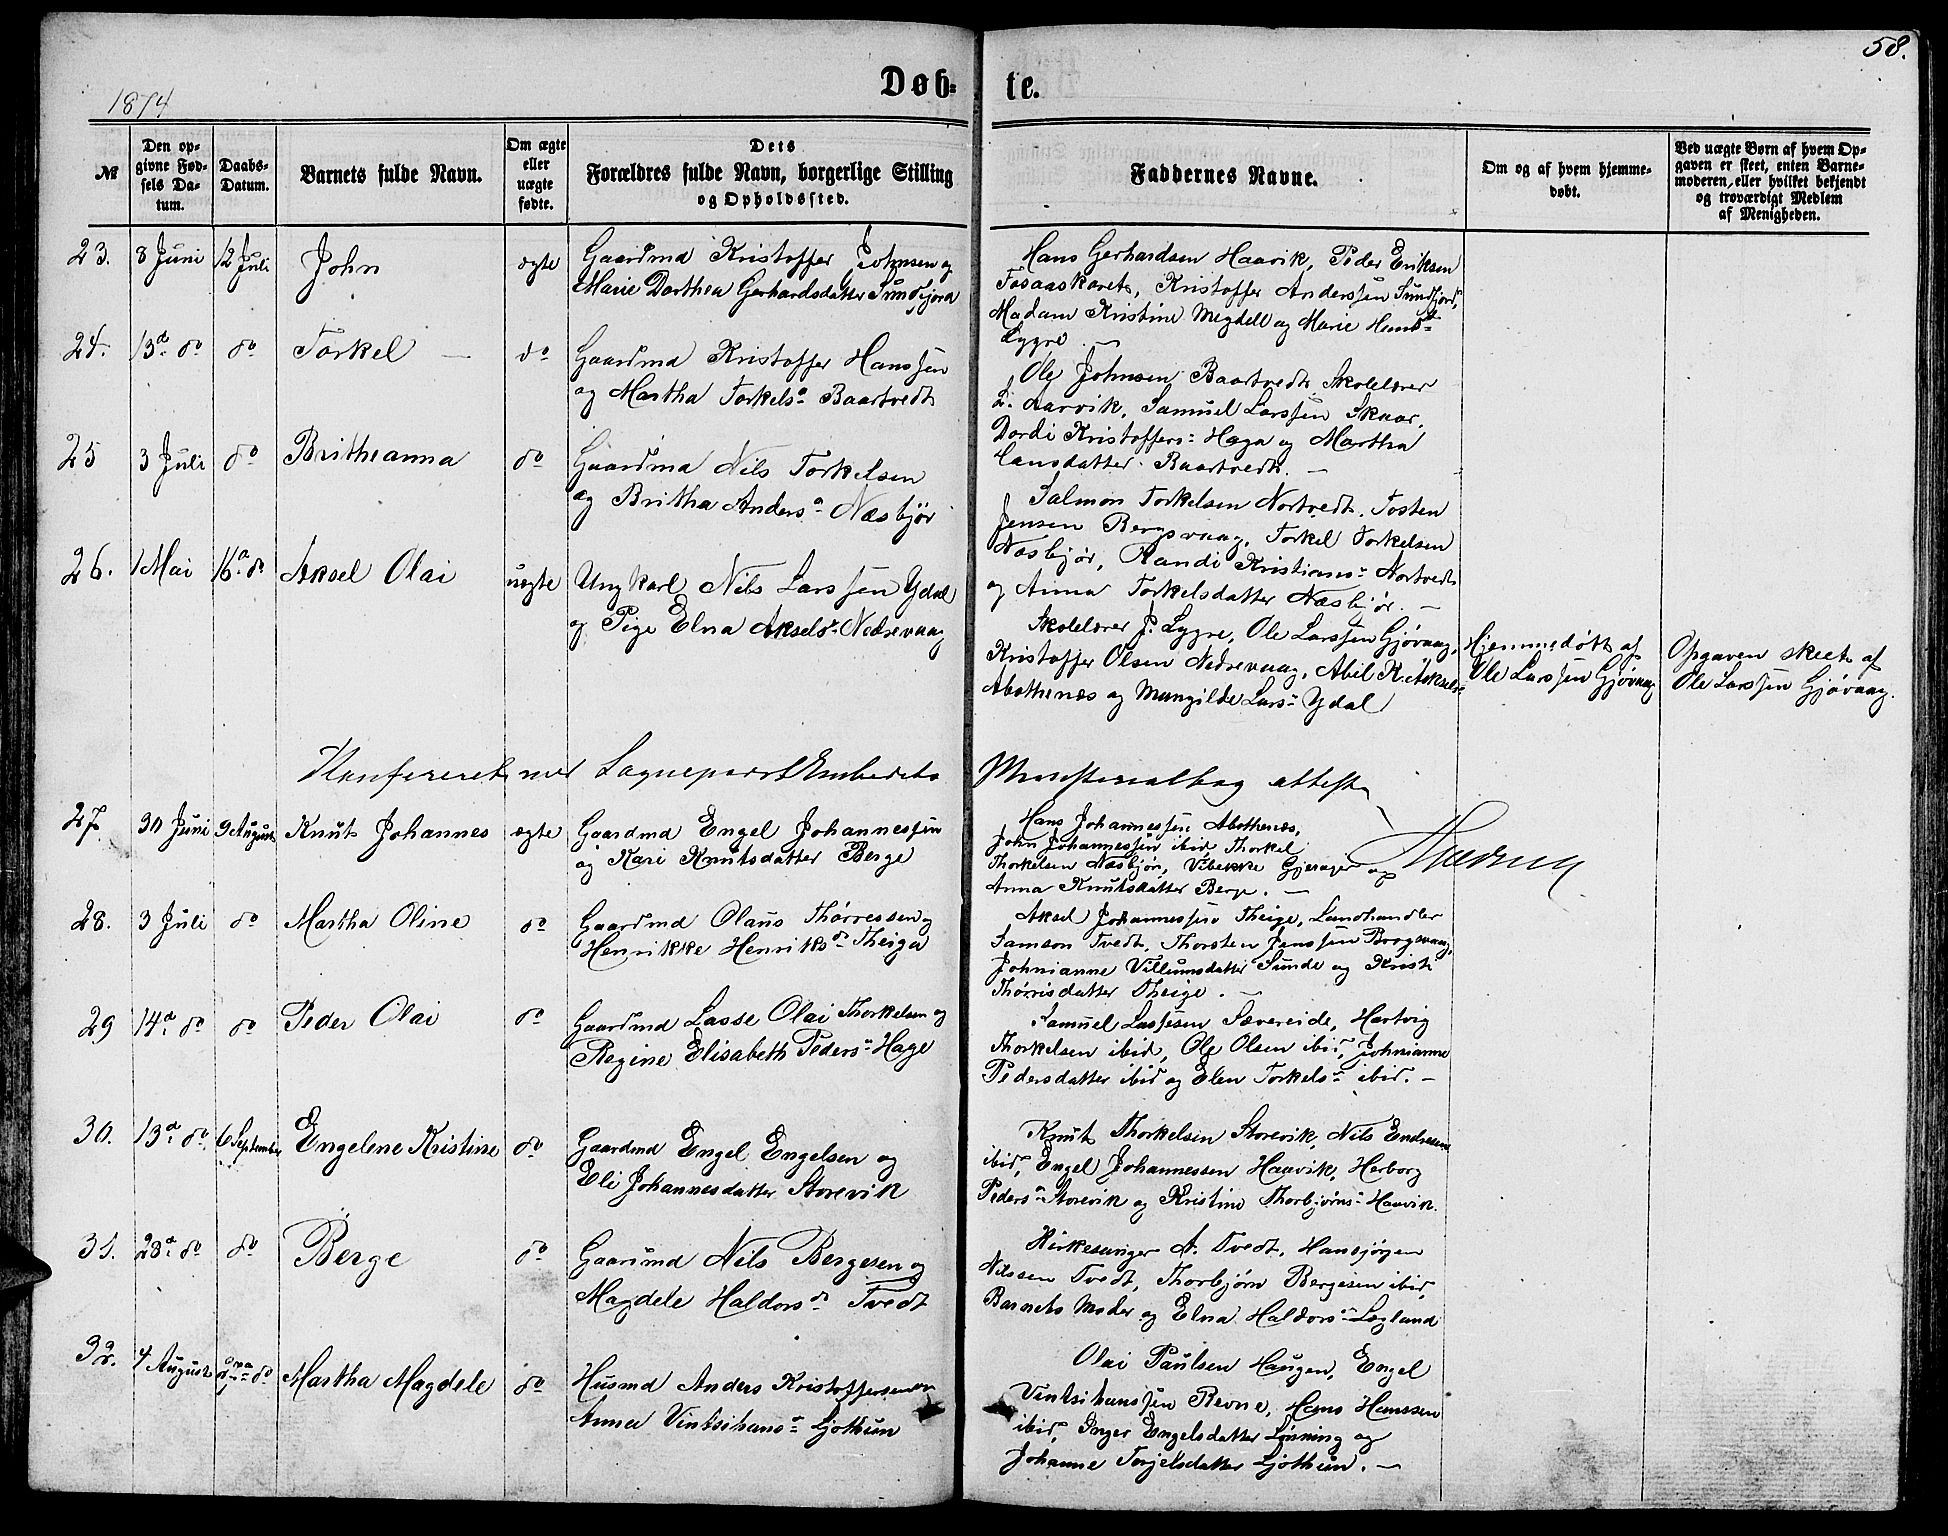 58.
1874
Døb=
te.
№
Den op-
givne Fød-
sels Da-
tum.
Daabs-
Datum.
Barnets fulde Navn.
Om ægte
eller
uægte
fødte.
Dets
Forældres fulde Navn, borgerlige Stilling
og Opholdssted.
Faddernes Navne.
Om og af hvem hjemme-
døbt.
Ved uægte Børn af hvem Op-
gaven er skeet, enten Barne-
moderen, eller hvilket bekjendt
og troværdigt Medlem
af Menigheden.
23.
8 Juni
12 Juli
John
ægte
Gaardmd Kristoffer Johnsen og
Marie Dorthea Gerhardsdatter Sundfjord
Hans Gerhardsen Haavik, Peder Eriksen
Fosaaskaret, Kristoffer Anderssen Sundfjord,
Madam Kristine Megdell og Marie Hans-
Lygre. —
24.
13d. do
do
Torkel —
do
Gaardmd Kristoffer Hanssen
og Martha Torkelsd. Baartvedt
Ole Johnsen Baartvedt Skolelærer
L. Aarvik, Samuel Larssen Skaar,
Dordi Kristoffers- Haga og Martha
Hansdatter Baartvedt. —
25
3 Juli
do
Brithanna
do
Gaardmd Nils Torkelsen
og Britha Andersd. Næsbjør
Salmon Torkelsen Nortvedt, Tosten
Jensen Bergsvaag, Torkel Torkelsen
Næsbjør, Randi Kristians- Nortvedt
og Anna Torkelsdatter Næsbjør. —
26.
1 Mai
16d. do
Aksel Olai
uægte
Ungkarl Nils Larssen Ydal
og Pige Elna Aksels- Nedrevaag
Skolelærer P. Lygre, Ole Larssen Gjøvaag,
Kristoffer Olsen Nedrevaag, Abel K. Aksels-
Abothenæs og Mungilde Lars- Ydal
Hjemmedøbt af
Ole Larssen Gjøvaag
Opgaven skeet af
Ole Larssen Gjøvaag.
Konfereret med Sognepræst Embedets
Ministerialbog attest.
27.
30 Juni
9 August
Knut Johannes
ægte
Gaardmd Engel Johannessen
og Kari Knutsdatter Berge
Hans Johannessen Abothenæs,
John Johannessen ibid Thorkel
Thorkelsen Næsbjør, Vibekke Gjerager og
Anna Knutsdatter Berge. —
28.
3 Juli
do
Martha Oline
do
Gaardmd Olaus Thørressen og
Henrikke Henriksd. Theiga
Aksel Johannessen Theige, Landhandler
Samson Tvedt, Thorsten Janssen Bergsvaag,
Johnianne Villumsdatter Sunde og Kristi
Thørrisdatter Theige. —
29
14d. do
do
Peder Olai
do
Gaardmd Lasse Olai Thorkelsen og
Regine Elisabeth Peders- Hage
Samuel Lassesen Sævereide, Hartvig
Thorkelsen ibid, Ole Olsen ibid, Johnianne
Pedersdatter ibid og Elen Torkels- ibid. —
30.
13d. do
6 September
Engelene Kristine
do
Gaardmd Engel Engelsen og
Eli Johannesdatter Storevik
Knut Thorkelsen Storevik, Nils Endresen
ibid, Engel Johannessen Haavik, Herborg
Peders- Storevik og Kristine Thorbjørns- Haavik.
31.
28d. do
do
Berge
do
Gaardmd Nils Bergesen og
Magdele Haldorsd. Tvedt
Kirkesanger A. Tvedt, Hansjørgen
Nilssen Tvedt, Thorbjørn Bergesen ibid,
Barnets Moder og Elna Haldors- Legland
32.
4 August
do
Martha Magdele
do
Husmd Anders Kristoffersen og
Anna Vintsihansd. Ljothun
Olai Paulsen Haugen, Engel
Vintsihanssen Revne, Hans Hanssen
ibid, Inger Engelsdatter Lønning og
Johanne Torjelsdatter Ljothun. —